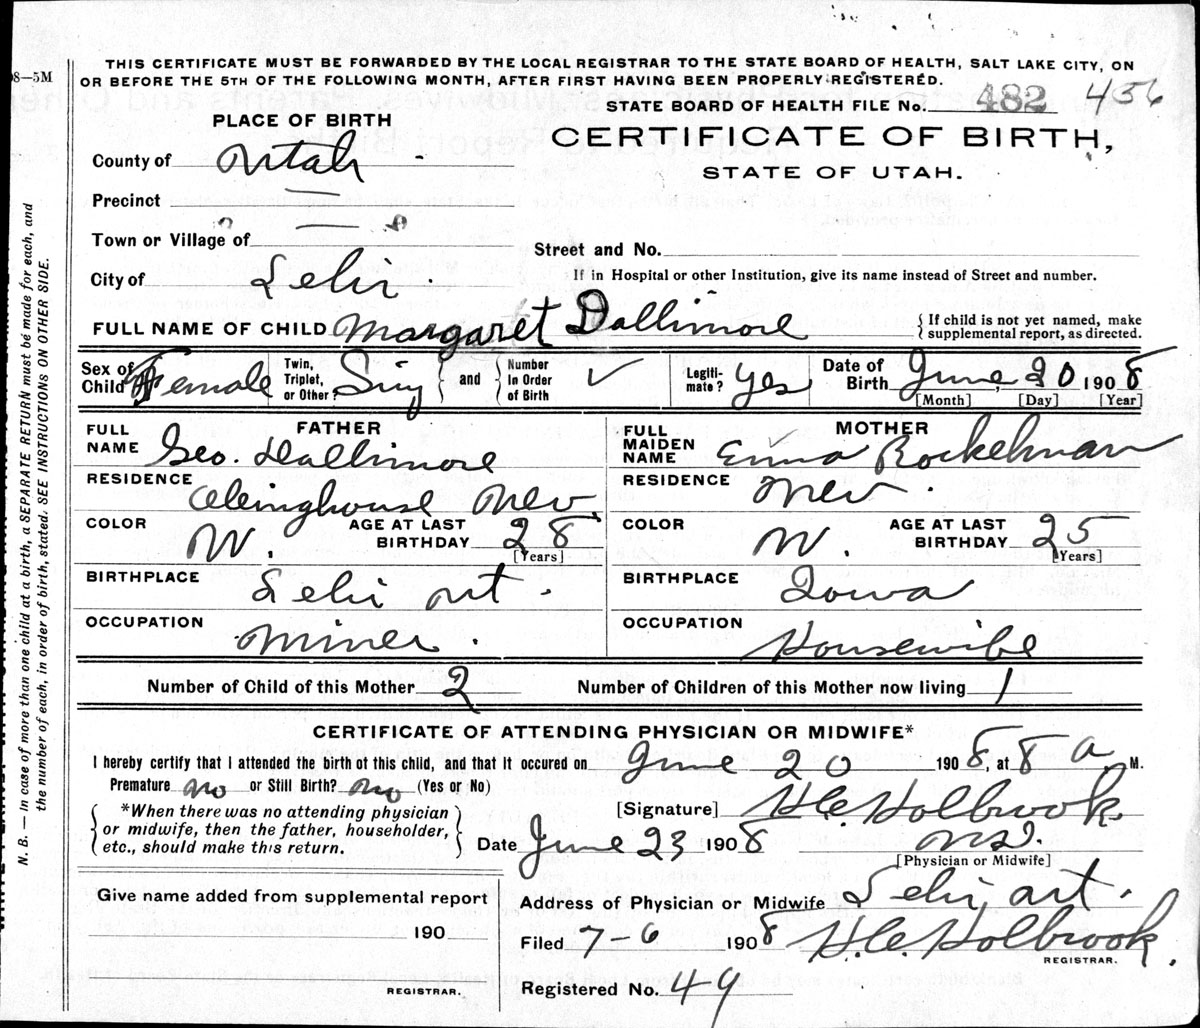 8—5M
THIS CERTIFICATE MUST BE FORWARDED BY THE LOCAL REGISTRAR TO THE STATE BOARD OF HEALTH, SALT LAKE CITY, ON
OR BEFORE THE 5TH OF THE FOLLOWING MONTH, AFTER FIRST HAVING BEEN PROPERLY REGISTERED.
STATE BOARD OF HEALTH FILE No. 482 456
PLACE OF BIRTH
CERTIFICATE OF BIRTH,
STATE OF UTAH.
County of Utah
Precinct —
Town or Village of —
Street and No.
City of Lehi
If in Hospital or other Institution, give its name instead of Street and number.
FULL NAME OF CHILD Margaret Dallimore { If child is not yet named, make
supplemental report, as directed.
Sex of Child Female Twin, Triplet, or Other? Sing } and { Number In Order of Birth ✓ Legiti- mate? Yes Date of Birth June 20 1908
[Month] [Day] [Year]
FATHER
FULL NAME Geo. Dallimore
RESIDENCE Olinghouse Nev.
COLOR W. AGE AT LAST BIRTHDAY 28
[Years]
BIRTHPLACE Lehi Ut.
OCCUPATION Miner.
MOTHER
FULL MAIDEN NAME Emma Rockelman
RESIDENCE Nev.
COLOR W. AGE AT LAST BIRTHDAY 25
[Years]
BIRTHPLACE Iowa
OCCUPATION Housewife
Number of Child of this Mother 2 Number of Children of this Mother now living 1
CERTIFICATE OF ATTENDING PHYSICIAN OR MIDWIFE*
I hereby certify that I attended the birth of this child, and that it occured on June 20 1908, at 8 a M.
Premature No or Still Birth? No (Yes or No)
{ *When there was no attending physician
or midwife, then the father, householder,
etc., should make this return. }
[Signature] H.C. Holbrook.
Date June 23 1908 M.D.
[Physician or Midwife]
Give name added from supplemental report
190
REGISTRAR.
Address of Physician or Midwife Lehi, Ut.
Filed 7-6 1908 H.C. Holbrook.
REGISTRAR.
Registered No. 49
N. B. — In case of more than one child at a birth, a SEPARATE RETURN must be made for each, and
the number of each, in order of birth, stated. SEE INSTRUCTIONS ON OTHER SIDE.